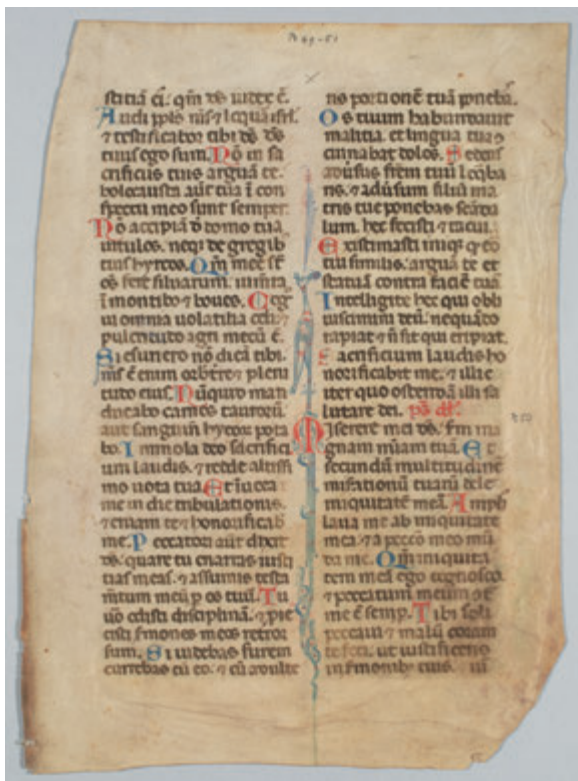 Ps 49-51
stitiā ei. qm̄ ds iudex ē.
Audi ppls ms ⁊ loquar isrl.
⁊ testificabor tibi ds ds
tuus ego sum. Nō in sa
crificiis tuis arguā te.
holocausta aūt tua ī con
spectu meo sunt semper.
Nō accipiā d domo tua
uitulos. neqꝫ de gregib
tuis hyrcos. Qm̄ mee st̄
oēs fere siluarum. iumta
ī montibꝫ ⁊ boues. Cog
ui omnia uolatilia celi. ⁊
pulcritudo agri mecū ē.
Si esuriero nō dicā tibi.
ms ē enim orb̄ tr̄e ⁊ pleni
tudo eius. Nūquid man
ducabo carnes taurorū.
aut sanguinē hyrcorꝫ pota
bo. Immola deo sacrifici
um laudis. ⁊ redde altissi
mo uota tua Et īuoca
me in die tribulationis.
⁊ eruam te ⁊ honorificab
me. Peccatori aūt dixit
ds. quare tu enarras iusti
tias meas. ⁊ assumis testa
m̄tum meū p os tuū. Tu
uō odisti disciplinā. ⁊ proie
cisti sermones meos retror
sum. Si uidebas furem
currebas cū eo. ⁊ cū adulte
ris portionē tuā ponebā.
Os tuum habundauit
malitia. et lingua tua ꝯ
cinnabat dolos. Sedens
aduersus frēm tuū loqueba
ris. ⁊ adūsum filiū ma
tris tue ponebas scāda
lum. hec fecisti ⁊ tacui.
Existimasti iniqꝫ qꝫ ero
tui similis. arguā te et
statuā contra faciē tuā.
Intelligite hec qui obli
uiscimini deū. nequādo
rapiat ⁊ n̄ sit qui eripiat.
Sacrificium laudis ho
norificabit me. ⁊ illic
iter quo ostendā illi sa
lutare dei. ps dd.
Miserere mei ds. scd̄m ma
gnam mīam tuā. Et
secundū multitudinē
miserationū tuarū dele
iniquitatē meā. Ampli
laua me ab iniquitate
mea. ⁊ a peccō meo mū
da me. Qm̄ iniquita
tem meā ego cognosco.
⁊ peccatum meum 9t
me ē semp. Tibi soli
peccaui ⁊ malū coram
te feci. ut iustificeris
in sermonibꝫ tuis.